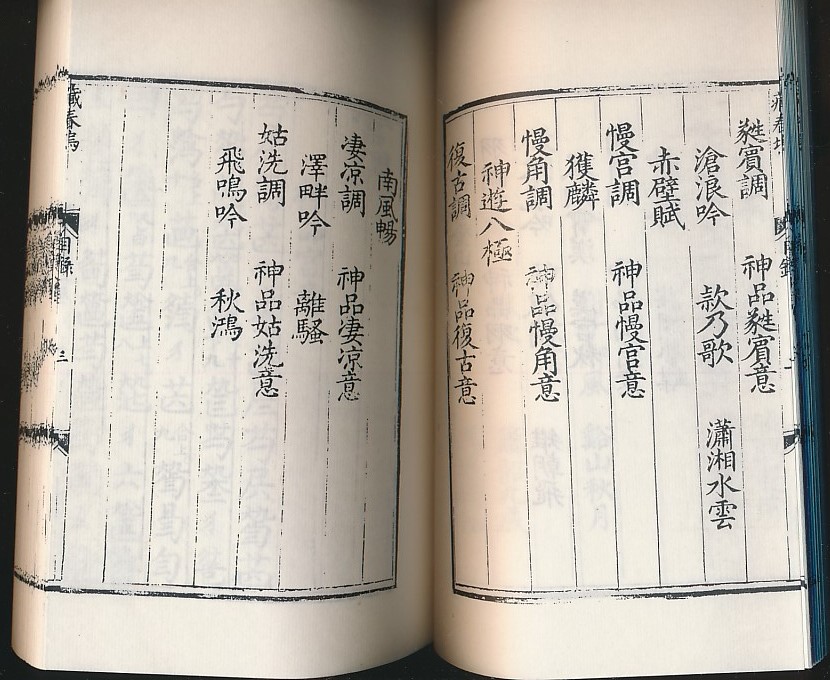 蕤賓調　神品蕤賓意
滄浪吟　款乃歌　瀟湘水雲
赤壁賦
慢宮調　神品慢宮意
獲麟
慢角調　神品慢角意
神遊八極
復古調　神品復古意
南風暢
凄凉調　神品凄凉意
澤畔吟　離騷
姑洗調　神品姑洗意
飛鳴吟　秋鴻
藏春塢
目錄
三